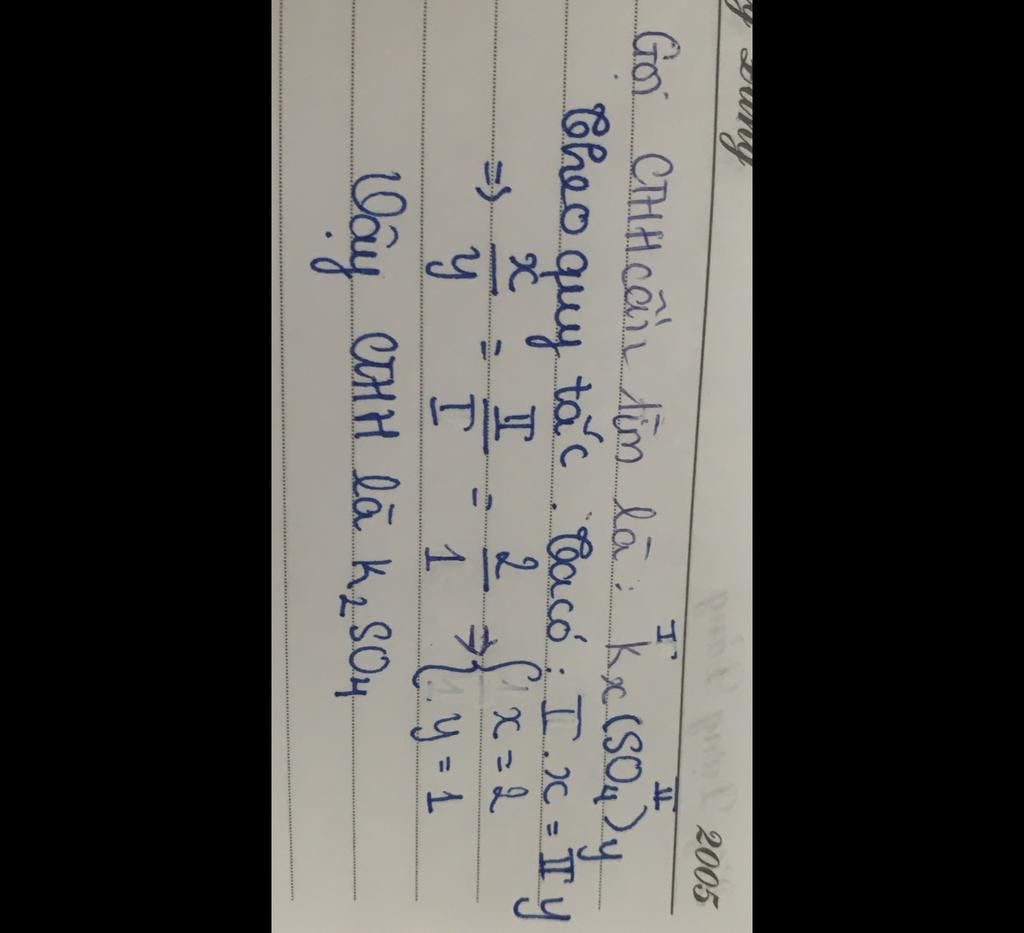 2005
Gọi CTHH cần tìm là: Kₓ^I(SO₄)^II y
Theo quy tắc. Ta có: I.x = II y
=> x/y = II/I = 2/1 => { x = 2
{ y = 1
Vậy CTHH là K₂SO₄